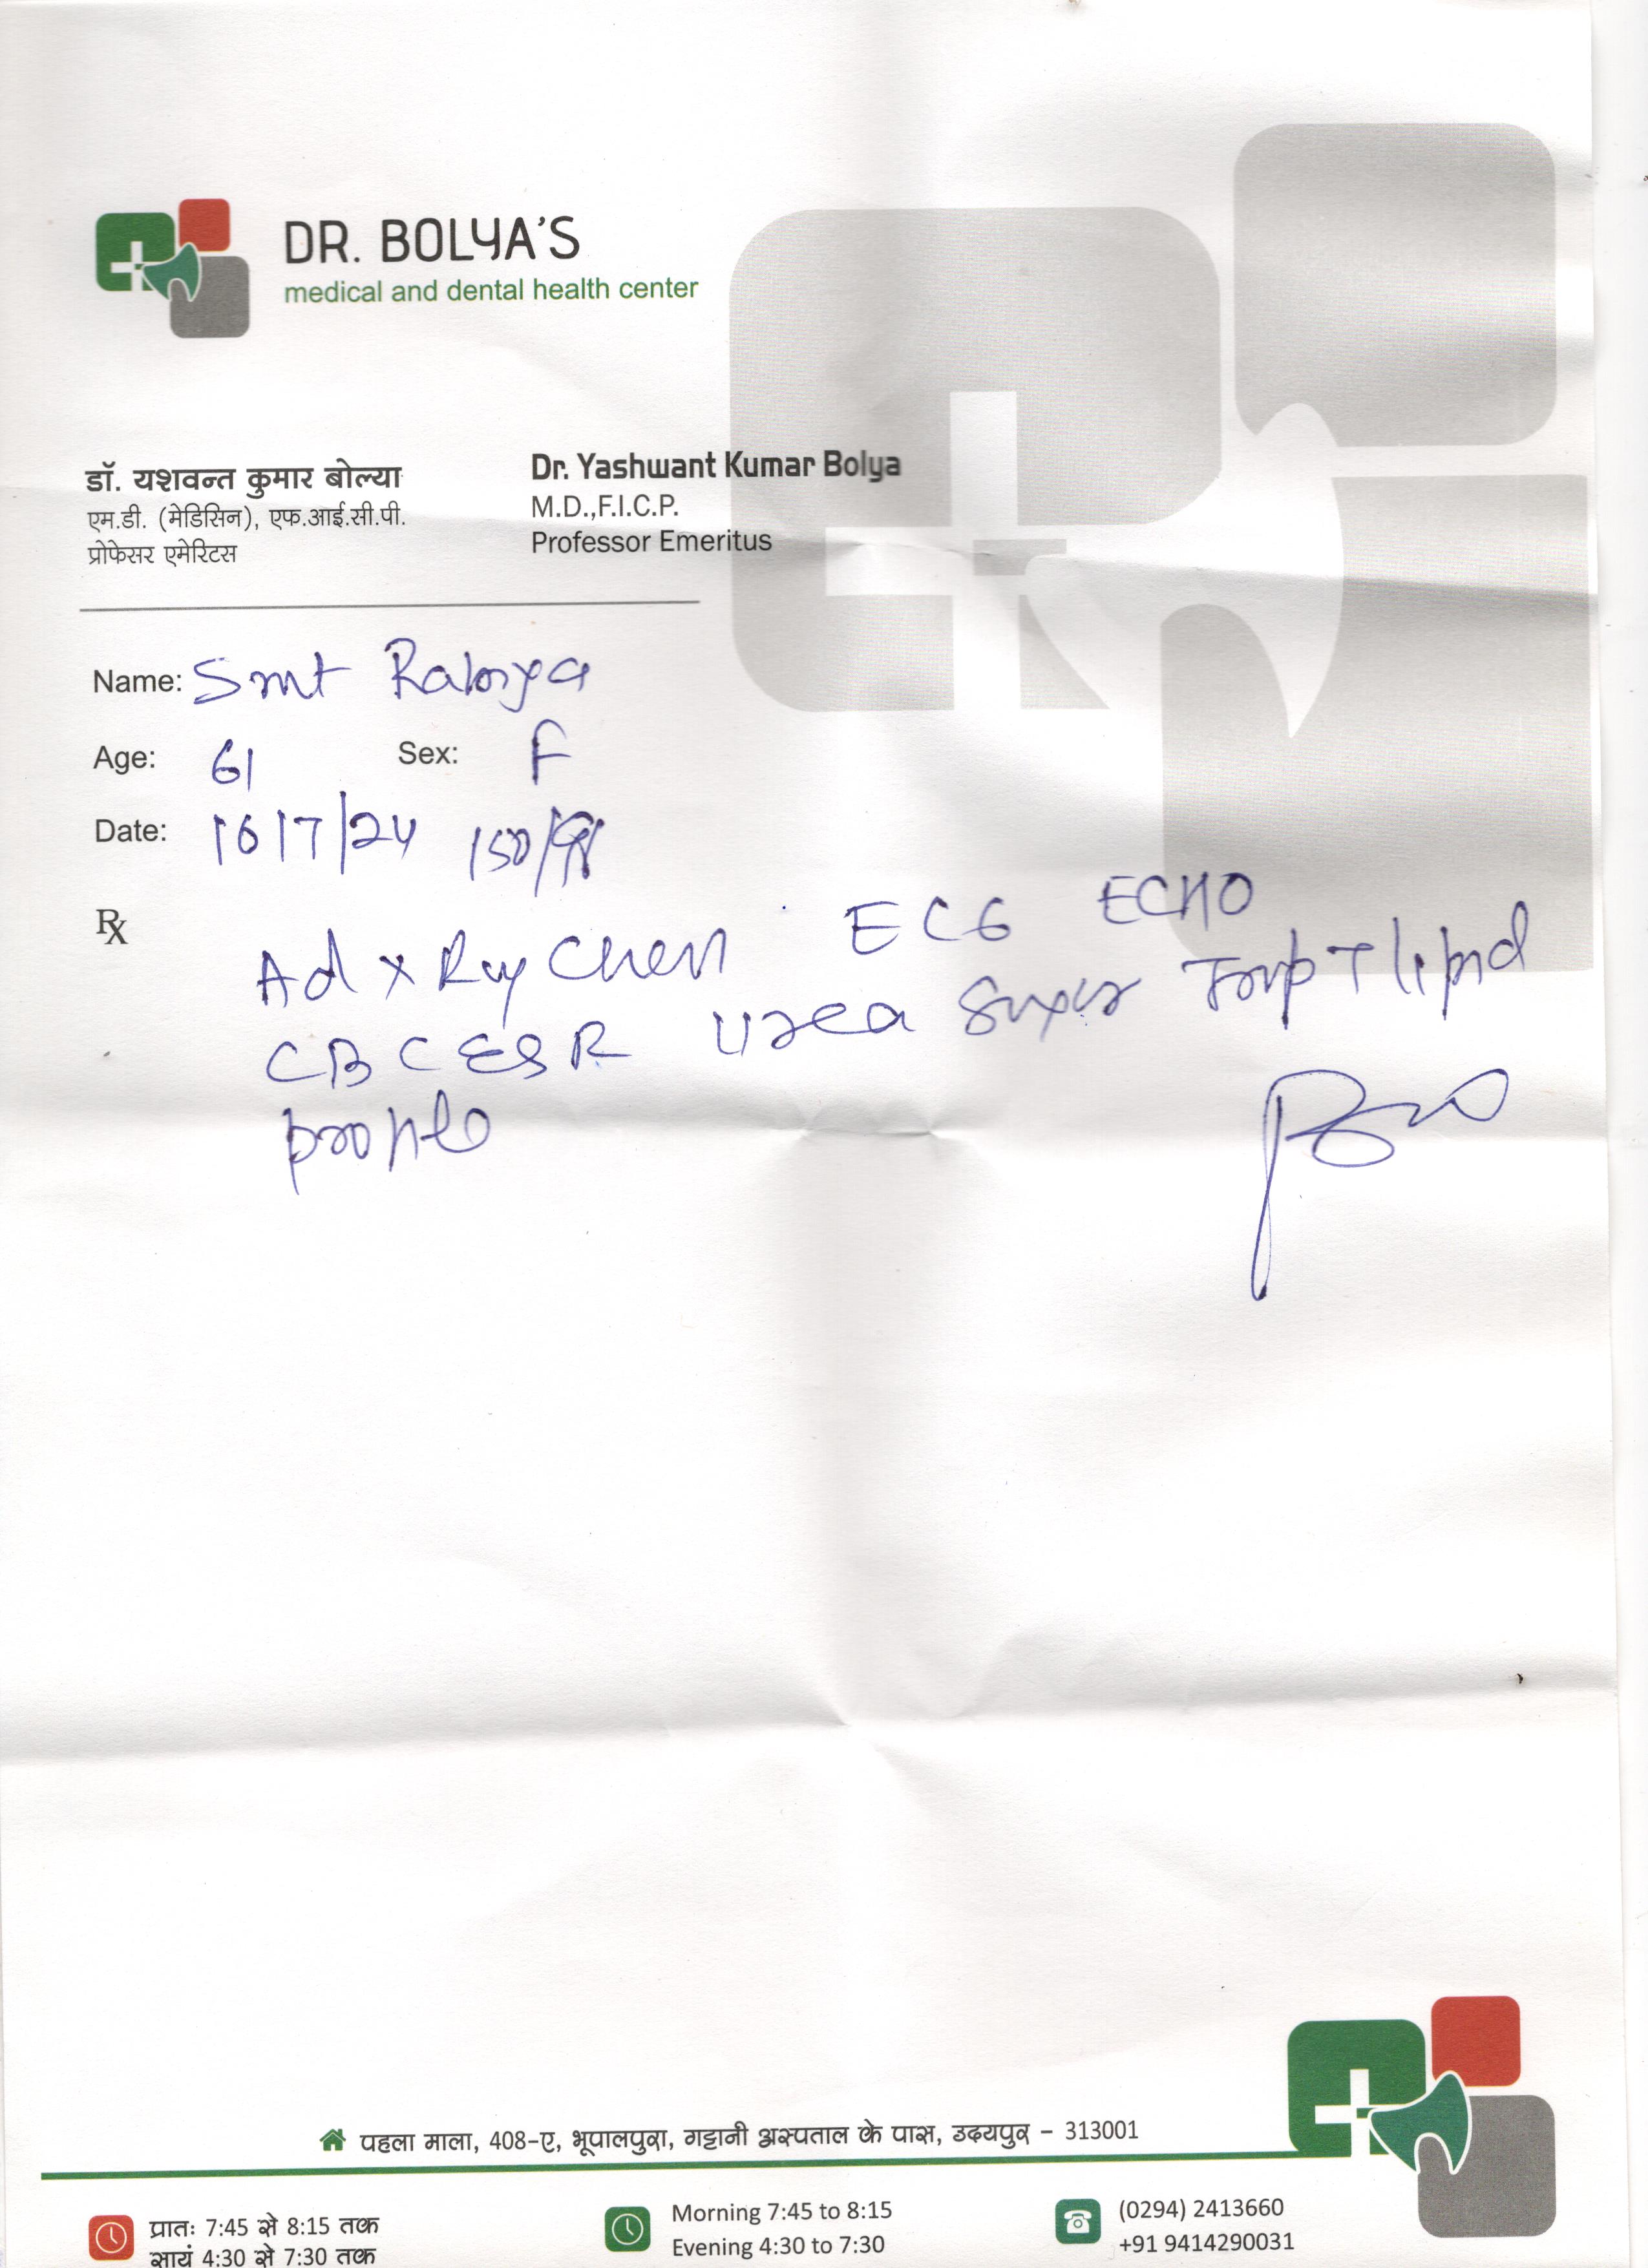 DR. BOLYA'S
medical and dental health center
डॉ. यशवन्त कुमार बोल्या
एम.डी. (मेडिसिन), एफ.आई.सी.पी.
प्रोफेसर एमेरिटस
Dr. Yashwant Kumar Bolya
M.D.,F.I.C.P.
Professor Emeritus
Name: Smt
Age: 61 Sex: F
Date: 16/7/24 150/
Rx
Ad X Ray Chest ECG ECHO
CBC ESR Urea Sugar Trop T lipid
profile
पहला माला, 408-ए, भूपालपुरा, गट्टानी अस्पताल के पास, उदयपुर - 313001
प्रातः 7:45 से 8:15 तक
सायं 4:30 से 7:30 तक
Morning 7:45 to 8:15
Evening 4:30 to 7:30
(0294) 2413660
+91 9414290031